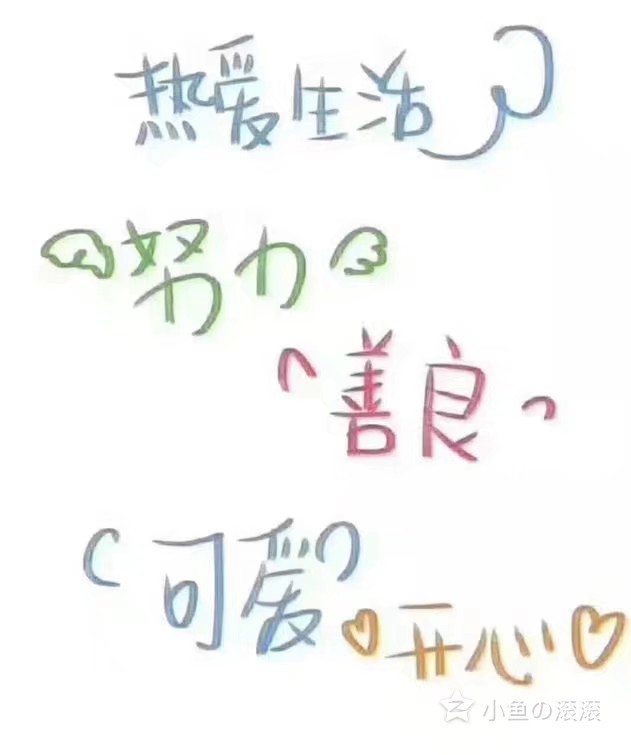 热爱生活
努力
善良
可爱
开心
小鱼の滚滚